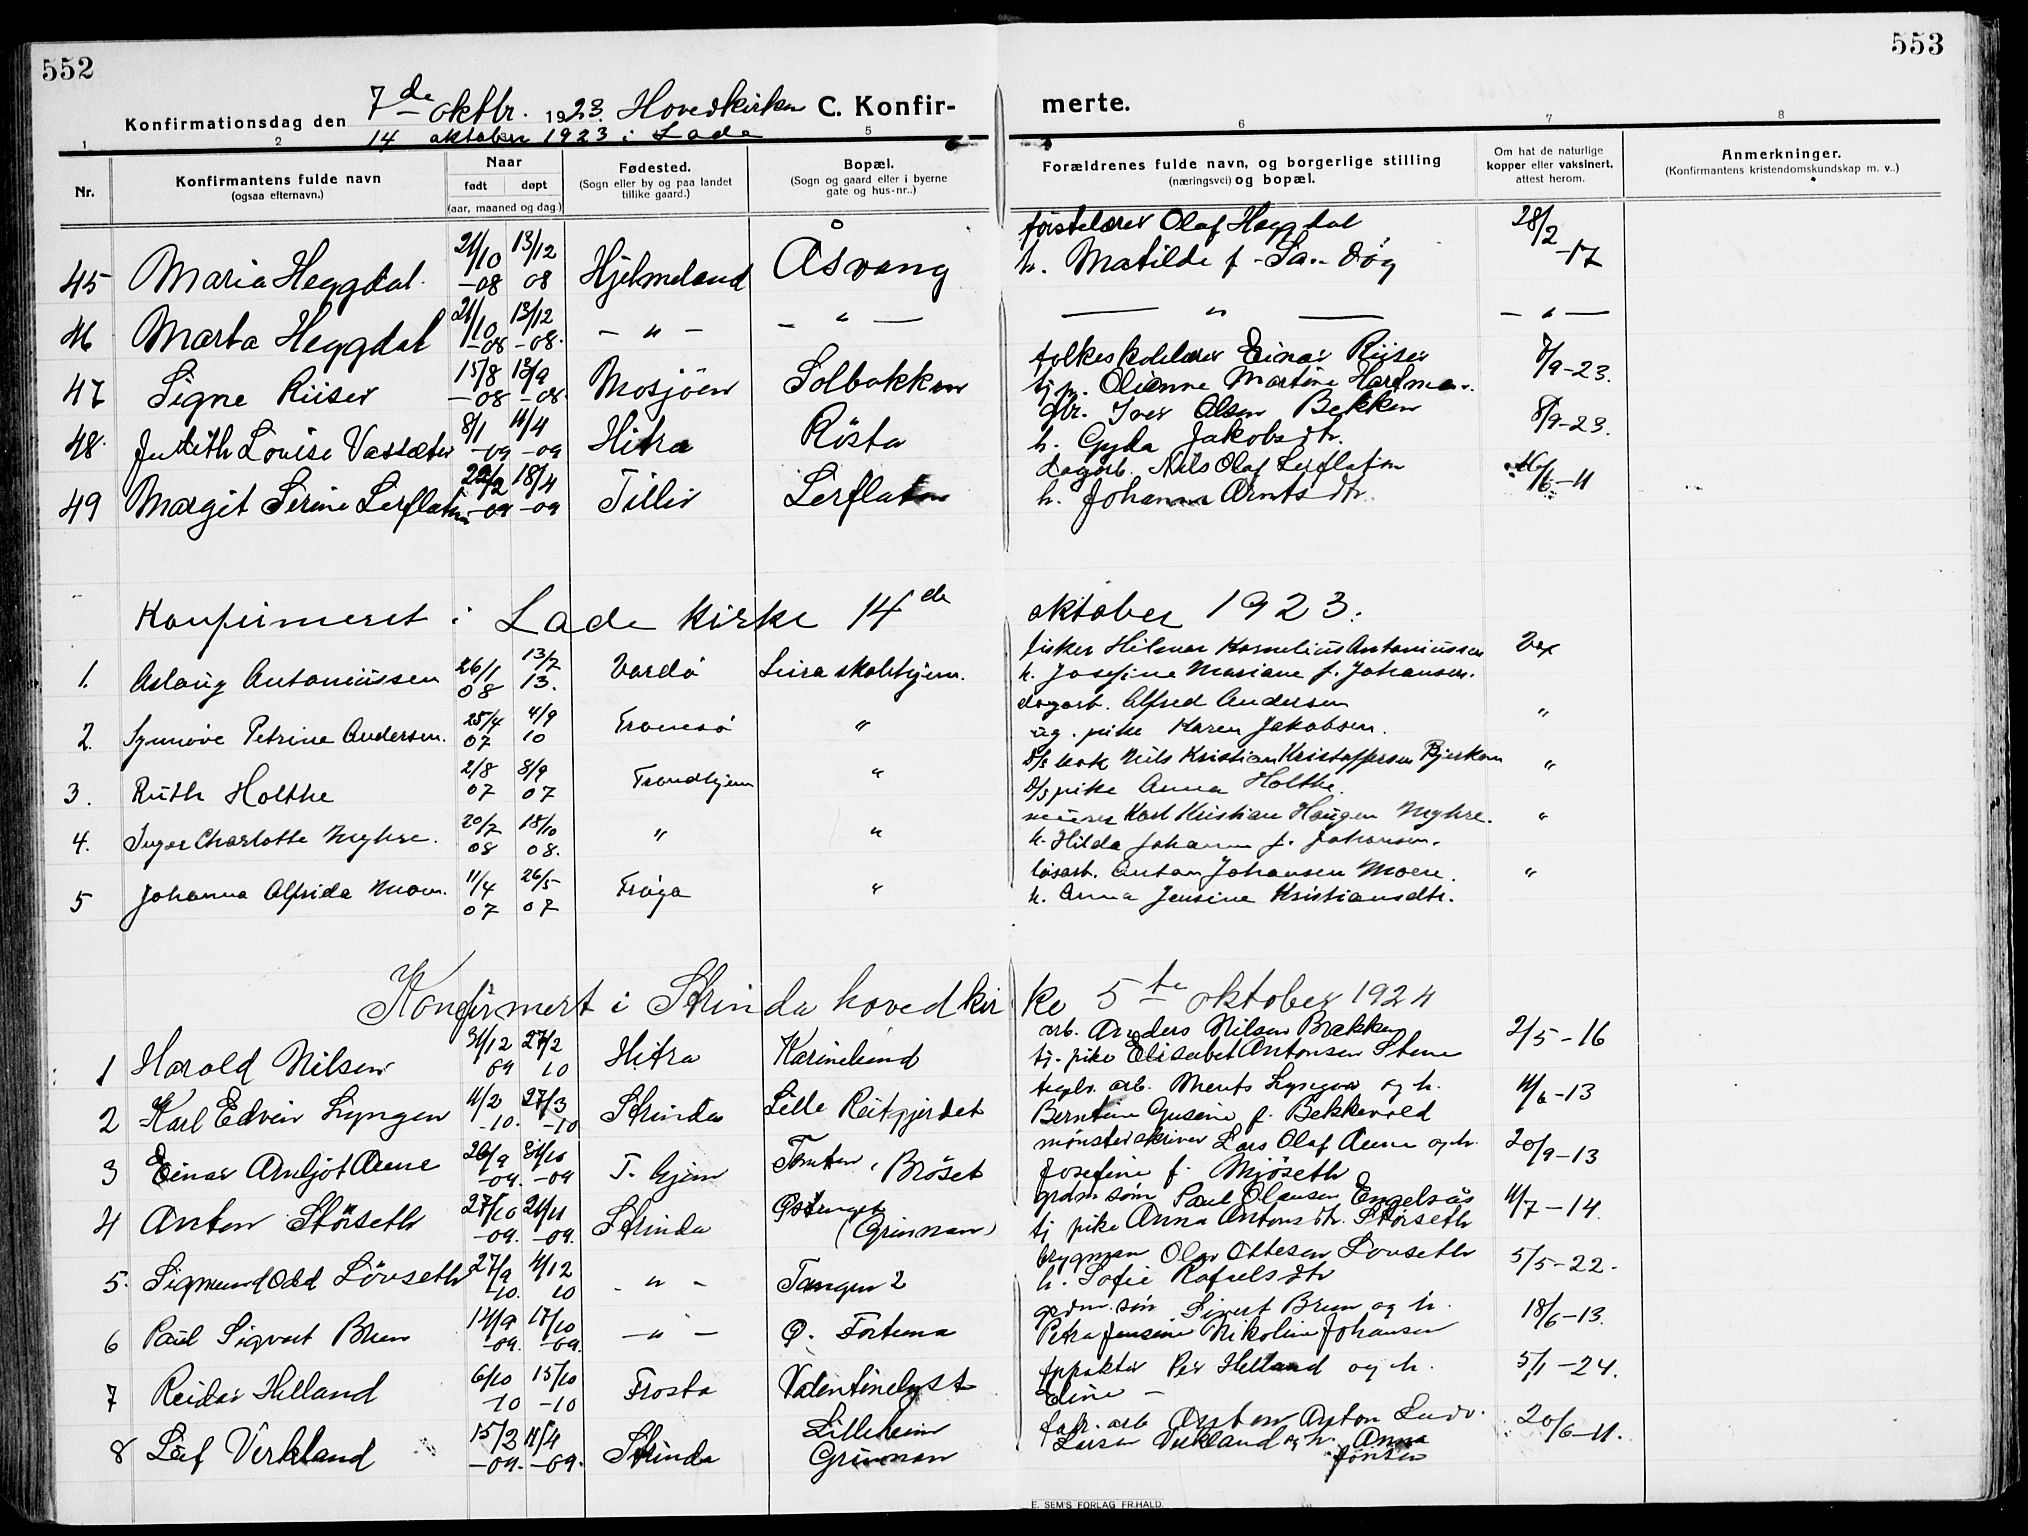 552
553
Konfirmationsdag den 7de oktbr. 1923. Hovedkirken C. Konfirmerte.
14 oktober 1923 i Lade
1 2 5 6 7 8
Nr.
Konfirmantens fulde navn (ogsaa efternavn.)
Naar født døpt (aar, maaned og dag.)
Fødested. (Sogn eller by og paa landet tillike gaard.)
Bopæl. (Sogn og gaard eller i byerne gate og hus-nr..)
Forældrenes fulde navn, og borgerlige stilling (næringsvei) og bopæl.
Om hat de naturlige kopper eller vaksinert, attest herom.
Anmerkninger. (Konfirmantens kristendomskundskap m. v..)
45 Maria Heggdal 21/10 -08 13/12 08 Hjelmeland Åsvang førstelærer Olaf Heggdal h. Matilde f. 28/2 -17
46 Marta Heggdal 21/10 -08 13/12 -08. - " - - " - - " - - " -
47 Signe Riiser 15/8 -08 13/9 -08 Mosjöen Solbakken folkeskolelærer Einar Riiser tj. p. Olianne Martine 7/9-23.
48. Judith Louise Vassæter 8/1 -09 11/4 -09 Hitra Rösta gbr. Iver Olsen Bekken h. Gyda Jakobsdtr. 8/9-23.
49 Margit Serine Lerflaten 22/2 -09 18/4 -09 Tiller Lerflaten dagarb. Nils Olaf Lerflaten h. Johanna Arntsdtr. /6-11
Konfirmeret i Lade kirke 14de oktober 1923.
1. Aslaug Antoniussen 26/1 08 13/7 13. Vardö Leira skolehjem. fisker Hilmar Kornelius Antoniussen h. Josefine Mariane f. Johansen. Vax
2. Synnöve Petrine Andersen. 25/4 07 4/9 10 Tromsö " dagarb. Alfred Andersen ug. pike Karen Jakobsen. "
3. Ruth Holthe 2/8 07 8/9 07 Trondhjem " d/s kok Nils Kristian Kristoffersen Bjerkam d/s pike Anna Holthe. "
4. Inger Charlotte Myhre. 20/7 08 18/10 08. " " murer Karl Kristian Haugen Myhre. h. Hilda Johanna f. Johansen. "
5 Johanna Alfrida Moen. 11/4 07 26/5 07 Fröya " lösarb. Anton Johansen Moen. h. Anna Jensine Kristiansdtr. "
Konfirmert i Strinda hovedkirke 5te oktober 1924
1 Harald Nilsen 31/12 09 27/2 10 Hitra Karinelund arb. Anders Nilsen Bækken tj. pike Elisabet Antonsen Stene 2/5-16
2 Karl Edvin Lyngen 11/2 -10. 27/3 -10 Strinda Lille Reitgjerdet teglv. arb. Ments Lyngen og h. Berntine Gusine f. Bekkevold 11/6-13
3 Einar Arnljot Aune 26/9 -09. 31/10 -09 T.hjem Tomten, Bröset mønsterskriver Lars Olaf Aune og h. Josefine f. Mjöseth 20/9-13
4 Anton Störseth 27/10 -09. 21/11 -09. Strinda (Grinnan) grdm. søn Paul Olausen Engelsås tj pike Anna Antonsdtr. Störseth 11/7-14.
5. Sigmund Odd Lövseth 27/9 -10. 4/12 10 - " - Tangen 2 brygman Olav Ottesen Lövseth h. Sofie Rafaelsdtr 5/5-22.
6 Paul Sigvart Bren 14/9 -09. 17/10 -09. - " - Ø. Fortuna grdm. søn Sivert Bren og h. Petra Jensine Nikoline Johansen 18/6-13.
7 Reidar Helland 6/10 -10 15/10 -10 Frosta Valentinelyst Per Helland og h. Eline - 5/1-24.
8 Leif Verkland 15/2 -09. 11/4 -09. Strinda Lilleheim Grinnan fabr. arb Anton Ludv. Larsen Verkland og h. Anna Jonsen 20/6-11.
E. SEM'S FORLAG FR.HALD.